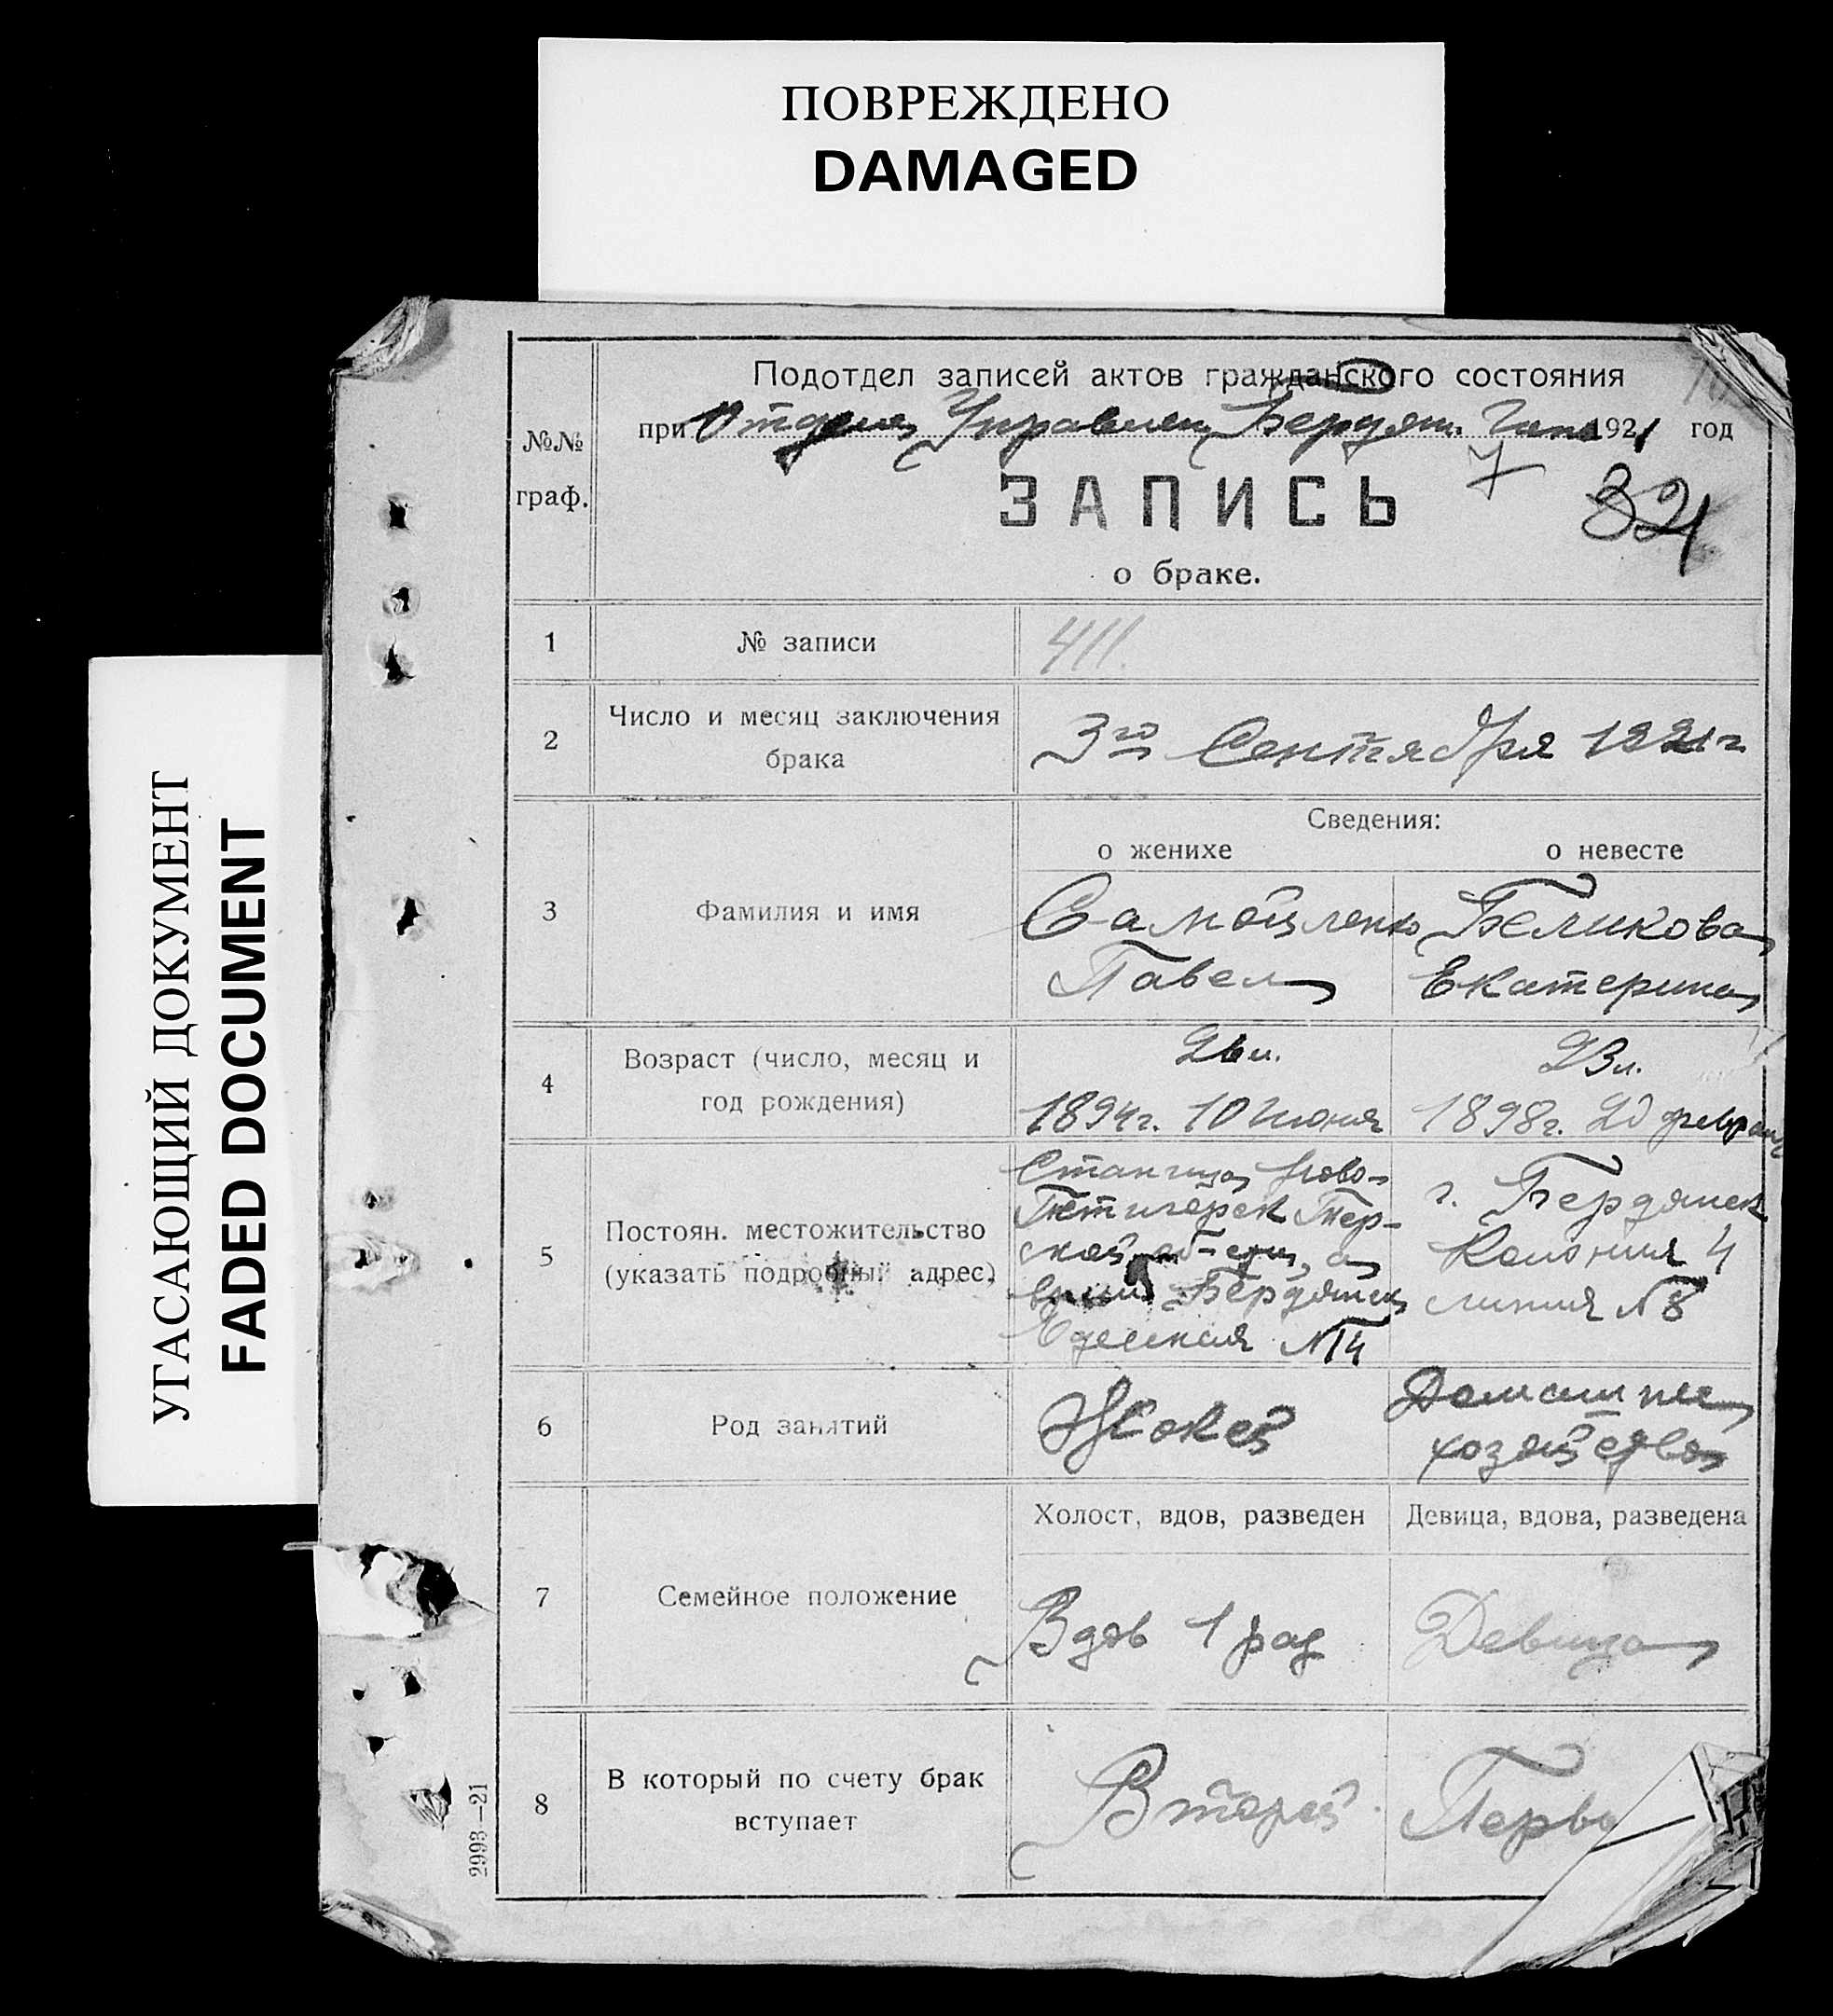 ПОВРЕЖДЕНО
DAMAGED
УГАСАЮЩИЙ ДОКУМЕНТ
FADED DOCUMENT
№№ граф.
Подотдел записей актов гражданского состояния
при Отдела Управлен Бердян. 1921 год
7
ЗАПИСЬ
32
о браке.
1 № записи 411.
2 Число и месяц заключения брака 3го Сентября 1921 г
Сведения:
о женихе о невесте
3 Фамилия и имя Самойленко Беликова
Павел Екатерина
4 Возраст (число, месяц и год рождения) 26 л. 23 л.
1894 г. 10 Июня 1898 г. 20 феврал
5 Постоян. местожительство (указать подробный адрес)
Станица Ново-
Тер-
ской об-сти, а
Бердянск
№ 14
г. Бердянск
Колония 4
линия № 8
6 Род занятий Жокей Домашнее
хозяйство
Холост, вдов, разведен Девица, вдова, разведена
7 Семейное положение Вдов 1 раз Девица
8 В который по счету брак вступает Второй Перво
2993—21